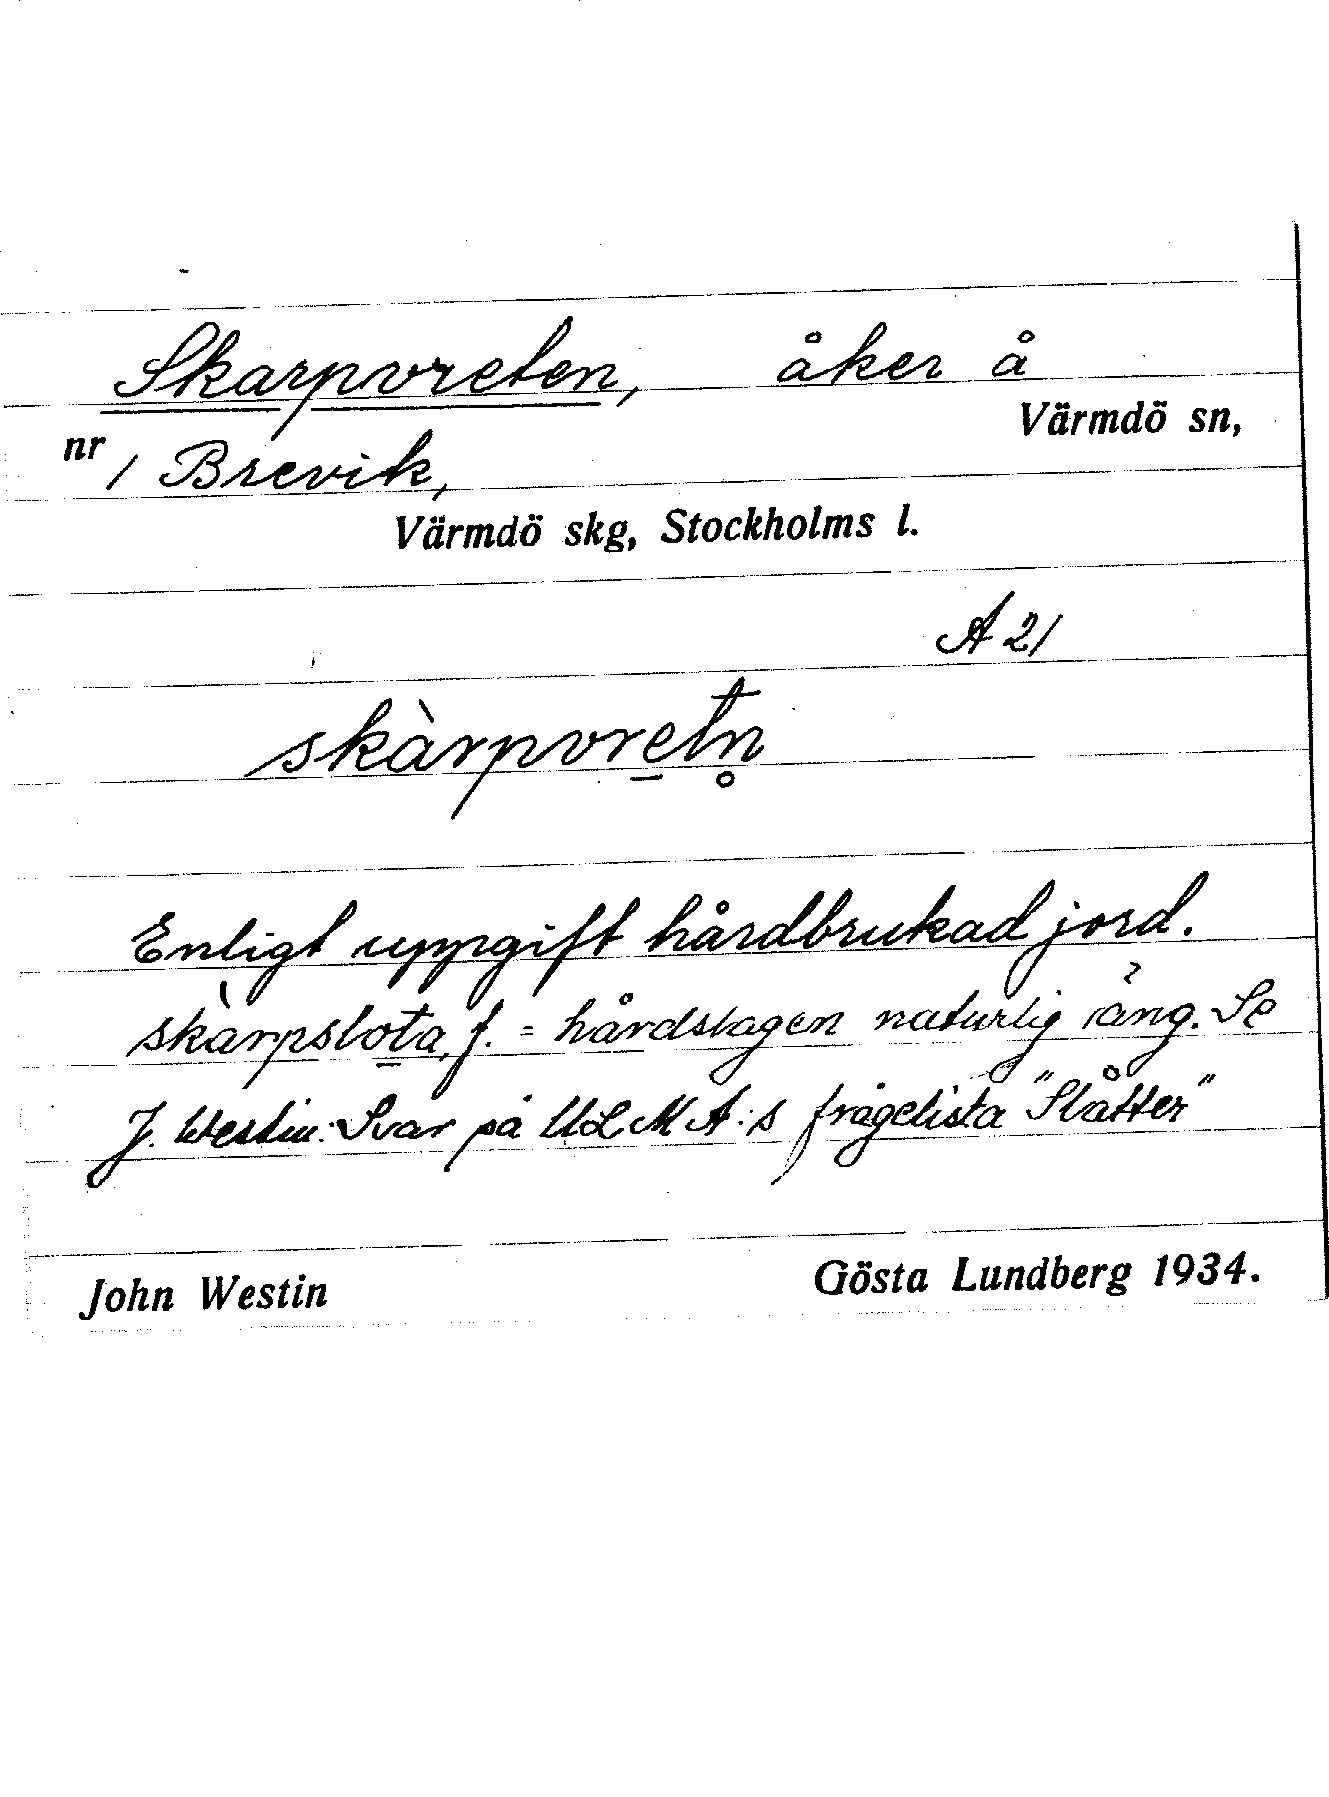 Skarpvreten, åker å
Värmdö sn,
nr 1 Brevik,
Värmdö skg, Stockholms l.
A 21
skàrpvret̶n̥
Enligt uppgift hårdbrukad jord.
skàrpslota, f. = hårdslagen naturlig äng. Se
J. Westin: Svar på ULMA:s frågelista "Slåtter"
John Westin
Gösta Lundberg 1934.